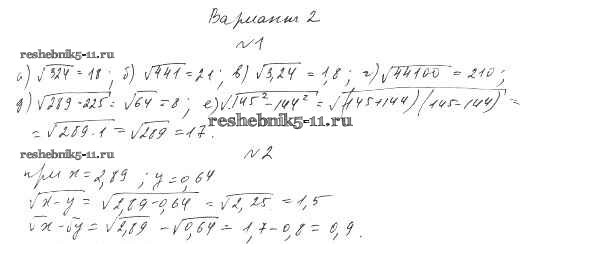 Вариант 2
№1
reshebnik5-11.ru
а) √324 = 18; б) √441 = 21; в) √3,24 = 1,8; г) √44100 = 210;
д) √289-225 = √64 = 8; е) √145² - 144² = √(145+144)(145-144) =
= √289·1 = √289 = 17.
reshebnik5-11.ru
reshebnik5-11.ru
№2
при x = 2,89; y = 0,64
√x-y = √2,89-0,64 = √2,25 = 1,5
√x - √y = √2,89 - √0,64 = 1,7 - 0,8 = 0,9.